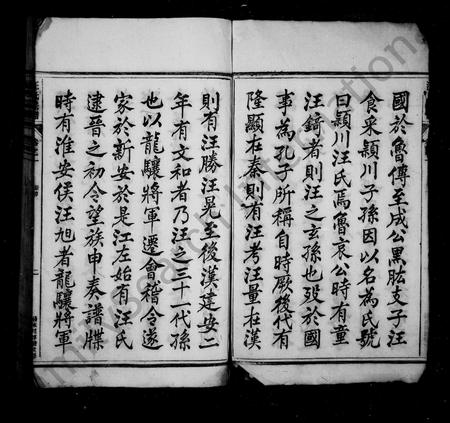 國於魯傳至成公黑肱支子汪
食采潁川子孫因以名為氏號
曰潁川汪氏焉魯哀公時有童
汪錡者則汪之玄孫也歿於國
事為孔子所稱自時厥後代有
隆顯在秦則有汪考汪量在漢
則有汪勝汪晃至後漢建安二
年有文和者乃汪之三十一代孫
也以龍驤將軍遷會稽令遂
家於新安於是江左始有汪氏
逮晉之初令望族申奏譜牒
時有淮安侯汪旭者龍驤將軍